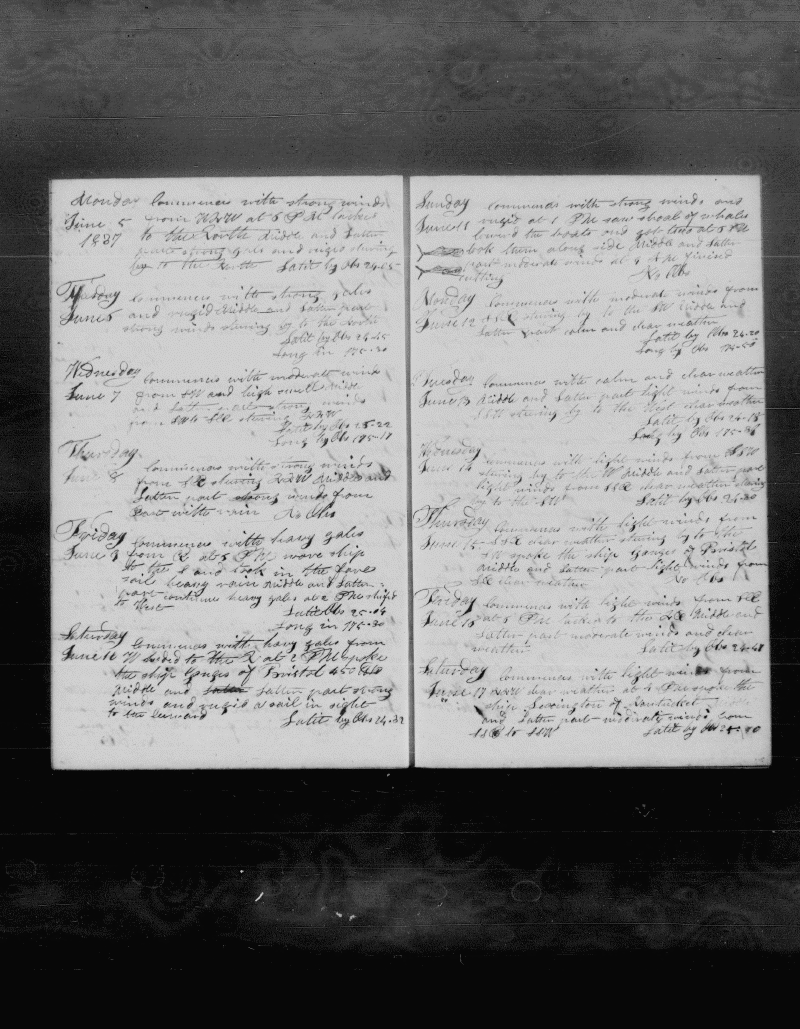 Monday Commences with strong winds
June 5 from WNW at 5 PM tacked
1837 to the North Middle and Latter
part strong gales and rugid stearing
by to the North Latit by Obs 24-05
Tuesday Commences with strong gales
June 6 and rugid Middle and Latter part
strong winds stearing by to the North
Latit by Obs 24-45
Long in 175-20
Wednesday Commences with moderate wind
June 7 from SW and high swell Middle
and Latter part strong winds
from SW to SSE stearing WNW
Latit by Obs 25-22
Long by Obs 175-17
Thursday
June 8 Commences with strong winds
from SSE stearing Middle and
Latter part strong winds from
East with rain No Obs
Friday Commences with heavy gales
June 9 from E at 5 PM wore ship
to the S and took in the fore
sail heavy rain Middle and Latter
part continue heavy gales at 2 PM
to West Latit Obs 25-04
Long in 175-30
Saturday Commences with heavy gales from
June 10 W headed to the N at 2 PM spoke
the ship Ganges of Bristol 450 bbls
Middle and Latter part strong
winds and rugid a sail in sight
to the leeward Latit by Obs 24-32
Sunday Commences with strong winds and
June 11 rugid at 1 PM saw shoal of whales
lowerd the boats and got two at 5 PM
took them along side Middle and Latter
part moderate winds at 4 PM finised
cutting No Obs
Monday Commences with moderate winds from
June 12 SSE stearing by to the SW Middle and
Latter part calm and clear weather
Latit by Obs 24-20
Long by Obs 174-50
Tuesday Commences with calm and clear weather
June 13 Middle and Latter part light winds from
SSW stearing by to the West clear weather
Latit by Obs 24-18
Long by Obs 175-36
Wednesday Commences with light winds from
June 14 stearing by to the W Middle and Latter part
light winds from SSE clear weather stearing
by to the SW Latit by Obs 24-30
Thursday Commences with light winds from
June 15 SSE clear weather stearing by to the
SW spoke the ship Ganges of Bristol
Middle and Latter part light winds from
SSE clear weather No Obs
Friday Commences with light winds from SSE
June 16 at 5 PM tacked to the Middle and
Latter part moderate winds and clear
weather Latit by Obs 24-41
Saturday Commences with light winds from
June 17 clear weather at 4 PM spoke the
ship Lexington of Nantucket
and Latter part moderate winds from
SSE to SSW Latit by Obs 25-20